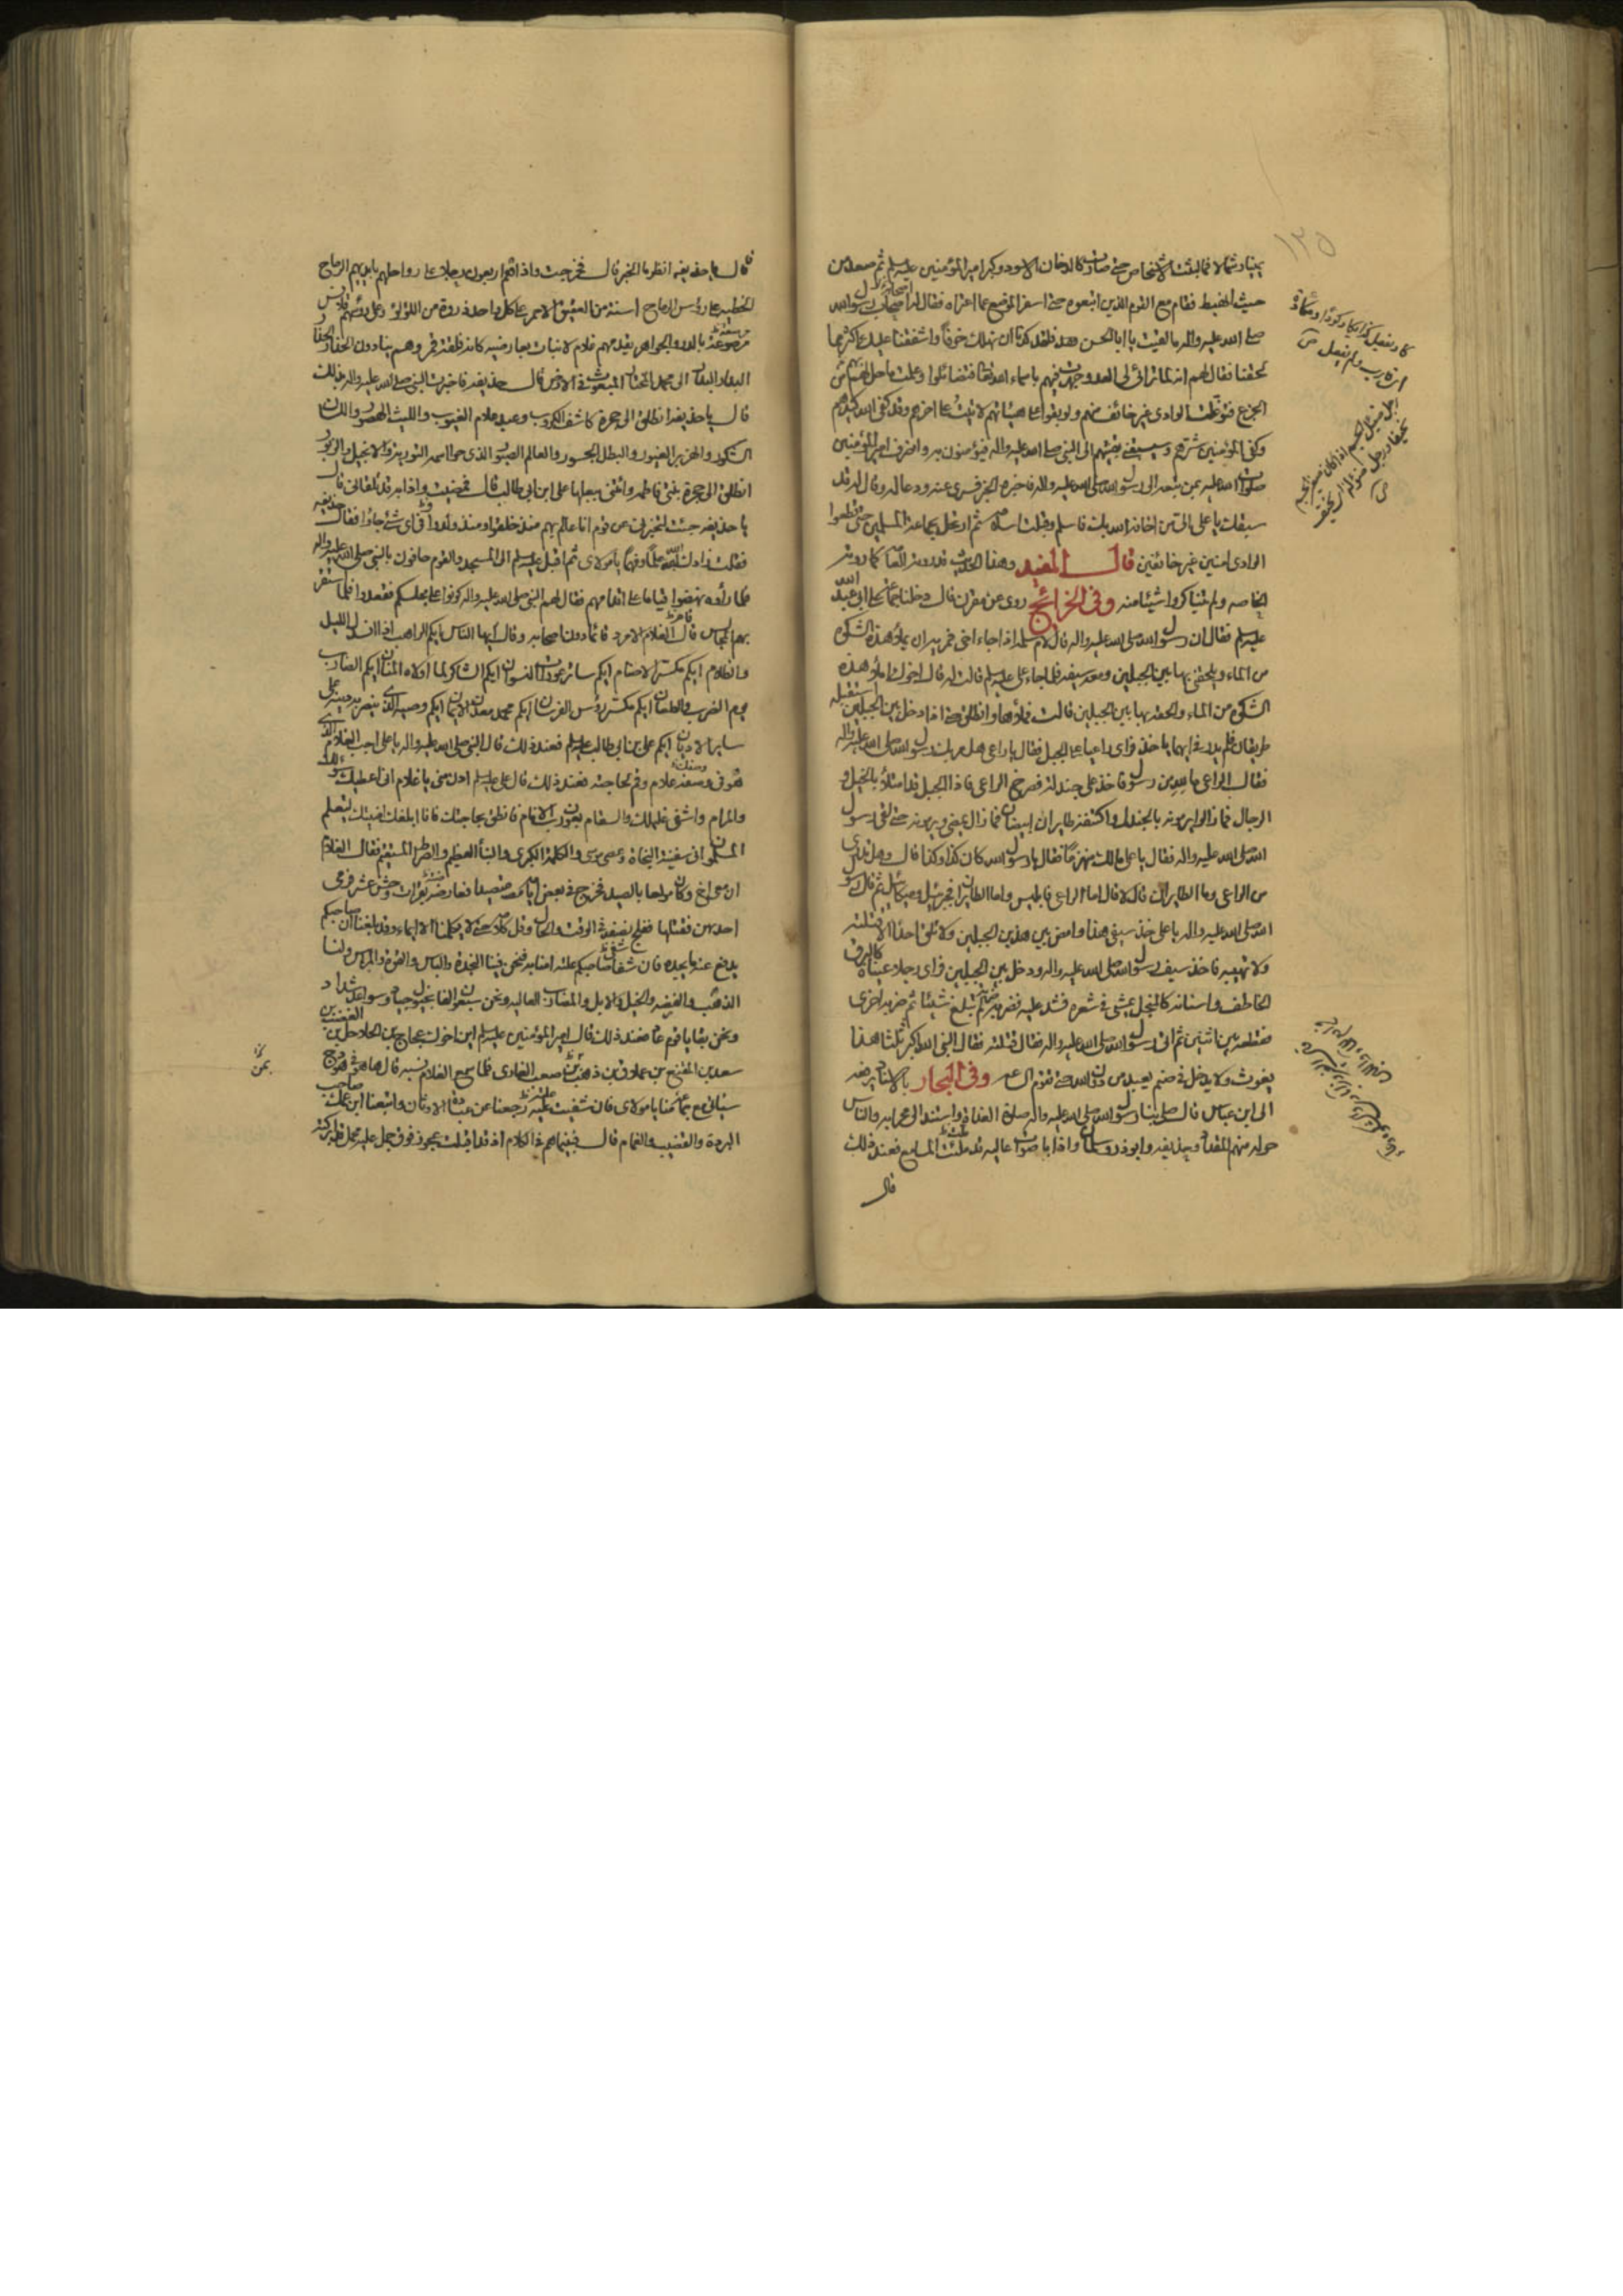 ١٢٥
يمينا وشمالا فما لبثت الاشخاص حتى صارت كالدخان الاسود وكبر امير المؤمنين عليه السلم ثم صعد من
حيث انهبط فقام مع القوم الذين اتبعوه حتى اسفر الموضع عما اعتراه فقال له اصحاب رسول الله
صلى الله عليه واله ما لقيت يا ابا الحسن فلقد كدنا ان نهلك خوفا واشفقنا عليك اكثر مما
لحقنا فقال لهم انه لما ترائى لى العدو جهرت فيهم باسماء الله تعالى فتضائلوا وعلمت ما حل بهم من
الجزع فتوغلت الوادى غير خائف منهم ولو بقوا على هيئاتهم لاتيت على اخرهم وقد كفى الله كيدهم
وكفى المؤمنين شرهم وسيسبقنى بقيتهم الى النبى صلى الله عليه واله فيؤمنون به وانصرف امير المؤمنين
صلوات الله عليه بمن تبعه الى رسول الله صلى الله عليه واله فاخبره الخبر فسرى عنه ودعا له وقال له قد
سبقك يا على الى من اخافه الله بك فاسلم وقبلت اسلامه ثم ارتحل بجماعة المسلمين حتى قطعوا
الوادى امنين غير خائفين قال المفيد وهذا الحديث قد روته العامة كما روته
الخاصه ولم يتناكروا شيئا منه وفى الخرائج روى عن مقرن قال دخلنا جماعة على ابى عبد الله
عليه السلم فقال ان رسول الله صلى الله عليه واله قال لام سلمة اذا جاء اخى فمريه ان يملأ هذه الشكوة
من الماء ويلحقنى بها بين الجبلين ومعه سيفه فلما جاء على عليه السلم قالت له قال اخوك املأ هذه
الشكوة من الماء والحقه بها بين الجبلين قالت فملأها وانطلق حتى اذا دخل بين الجبلين استقبله
طريقان فلم يدر فى ايهما ياخذ فراى راعيا على الجبل فقال يا راعى هل مر بك رسول الله صلى الله عليه واله
فقال الراعى ما لله من رسول فاخذ على جندلة فصرخ الراعى فاذا الجبل قد امتلأ بالخيل و
الرجال فما زالوا يرمونه بالجندل واكتنفه طايران ابيضان فما زال يمضى ويرمونه حتى لقى رسول
الله صلى الله عليه واله فقال يا على ما لك منهزما فقال يا رسول الله كان كذا وكذا قال وهل تدرى
من الراعى وما الطايران قال لا قال اما الراعى فابليس واما الطايران فجبرئيل وميكائيل ثم قال رسول
الله صلى الله عليه واله يا على خذ سيفى هذا وامض بين هذين الجبلين ولا تلق احدا الا قتلته
ولا تهيبه فاخذ سيف رسول الله صلى الله عليه واله ودخل بين الجبلين فراى رجلا عيناه كالبرق
الخاطف واسنانه كالمنجل يمشى فى شعره فشد عليه فضربه ضربة فلم تبلغ شيئا ثم ضربه اخرى
فقطعه بين اثنين ثم اتى رسول الله صلى الله عليه واله فقال قتلته فقال النبى الله اكبر ثلثا هذا
يغوث ولا يدخل فى صنم يعبد من دون الله حتى تقوم الساعة وفى البحار بالاسناد يرفعه
الى ابن عباس قال صلى بنا رسول الله صلى الله عليه واله صلاة الغداة واستند الى محرابه والناس
حوله منهم المقداد وحذيفه وابو ذر وسلمان واذا باصوات عاليه قد ملئت المسامع فعند ذلك
قال
قال يا حذيفه انظر ما الخبر قال فخرجت واذا هم اربعون رجلا على رواحلهم بايديهم الرماح
الخطيه على رؤس الرماح اسنة من العقيق الاحمر على كل واحد بدوة من اللؤلؤ وعلى رؤسهم قلانس
مرصوعة بالدر والجواهر يقدمهم غلام لا نبات بعارضيه كانه فلقة قمر وهم ينادون الحذار الحذار
البدار البدار الى محمد المختار المبعوث فى الارض قال حذيفه فاخبرت النبى صلى الله عليه واله بذلك
قال يا حذيفه انطلق الى حجرة كاشف الكروب وعبد علام الغيوب والليث الهصور واللسان
الشكور والهزبر الغيور والبطل الجسور والعالم الصبور الذى حوا اسمه التورية والانجيل والزبور
انطلق الى حجرة بنتى فاطمه واتنى ببعلها على ابن ابى طالب قال فمضيت واذا به قد تلقانى قال
يا حذيفه جئت لتخبرنى عن قوم انا عالم بهم منذ خلقوا ومنذ ولدوا وفى اى شئ جاؤا فقال حذيفه
فقلت زادك الله علما وفهما يا مولاى ثم اقبل عليه السلم الى المسجد والقوم حافون بالنبى صلى الله عليه واله
فلما رأوه نهضوا قياما على اقدامهم فقال لهم النبى صلى الله عليه واله كونوا على مجلسكم فقعدوا فلما استقر
بهم المجلس قام الغلام الامرد قائما دون اصحابه وقال ايها الناس ايكم الراهب اذا انسدل الليل
والظلام ايكم مكسر الاصنام ايكم ساتر عورات النسوان ايكم الشاكر لما اولاه المنان ايكم الضارب
يوم الضرب والطعان ايكم مكسر رؤس الفرسان ايكم محمد معدن الايمان ايكم وصيه الذى ينصر به دينه على
ساير الاديان ايكم على بن ابى طالب عليه السلم فعند ذلك قال النبى صلى الله عليه واله يا على اجب الغلام الذى
هو فى وصفه علام وقم لحاجته فعند ذلك قال على عليه السلم ادن منى يا غلام انى اعطيك سؤلك
والمرام واشفى غليلك والسقام بعون رب الانام فانطق بحاجتك فانا ابلغك امنيتك ليعلم
المسلمون انى سفينة النجاة وعصى موسى والكلمة الكبرى والنبأ العظيم والصراط المستقيم فقال الغلام
ان معى اخ وكان مولعا بالصيد فخرج فى بعض ايامه متصيدا فعارضه بقرات وحش عشر فرمى
احديهن فقتلها ففلج نصفه فى الوقت والحال وقل كلامه حتى لا يكلمنا الا ايماء وقد بلغنا ان صاحبكم
يدفع عنه ما يجده فان شفا صاحبكم علته امنا به فنحن فينا النجدة والباس والقوة والمراس ولنا
الذهب والفضه والخيل والابل والمضارب العاليه ونحن سبعون الفا بخيول جياد وسواعد شداد
ونحن بقايا قوم عاد فعند ذلك قال امير المؤمنين عليه السلم اين اخوك عجاج بن الحلاحل بن ابى الغضب بن
سعد بن المقنع بن عملاق بن ذهب بن صعب العادى فلما سمع الغلام نسبه قال ها هو فى هودج
سياتى مع جماعة منا يا مولاى فان شفيت علته رجعنا عن عبادة الاوثان واتبعنا ابن عمك صاحب
البردة والقضيب والغمام قال فبينما هم فى الكلام اذ قد اقبلت عجوز فوق جمل عليه محمل قد بركته